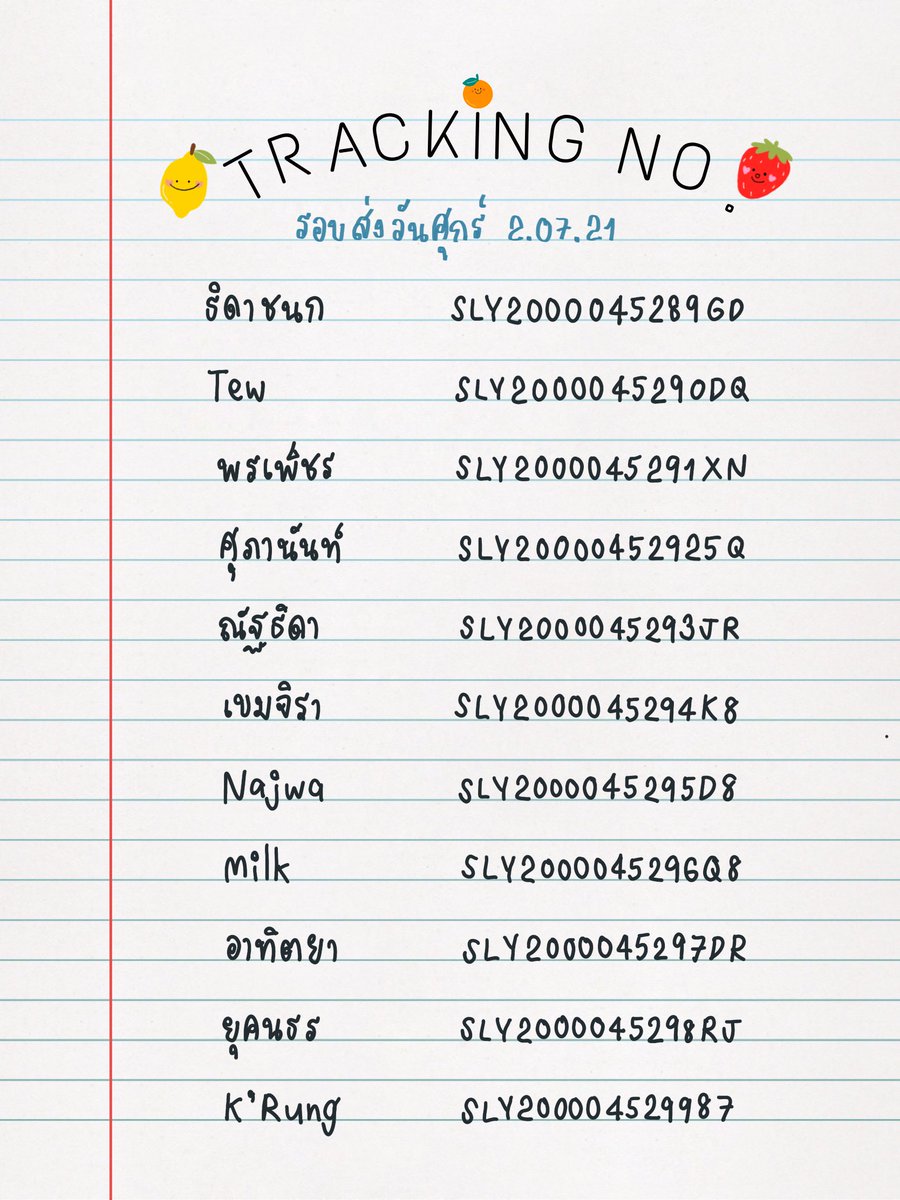 TRACKING NO.
รอบส่งวันศุกร์ 2.07.21
ธิดาชนก SLY2000045289GD
Tew SLY2000045290DQ
พรเพ็ชร SLY2000045291XN
ศุภานันท์ SLY20000452925Q
ณัฐธิดา SLY2000045293JR
เขมจิรา SLY2000045294K8
Najwa SLY2000045295D8
Milk SLY2000045296Q8
อาทิตยา SLY2000045297DR
ยุคนธร SLY2000045298RJ
K'Rung SLY200004529987